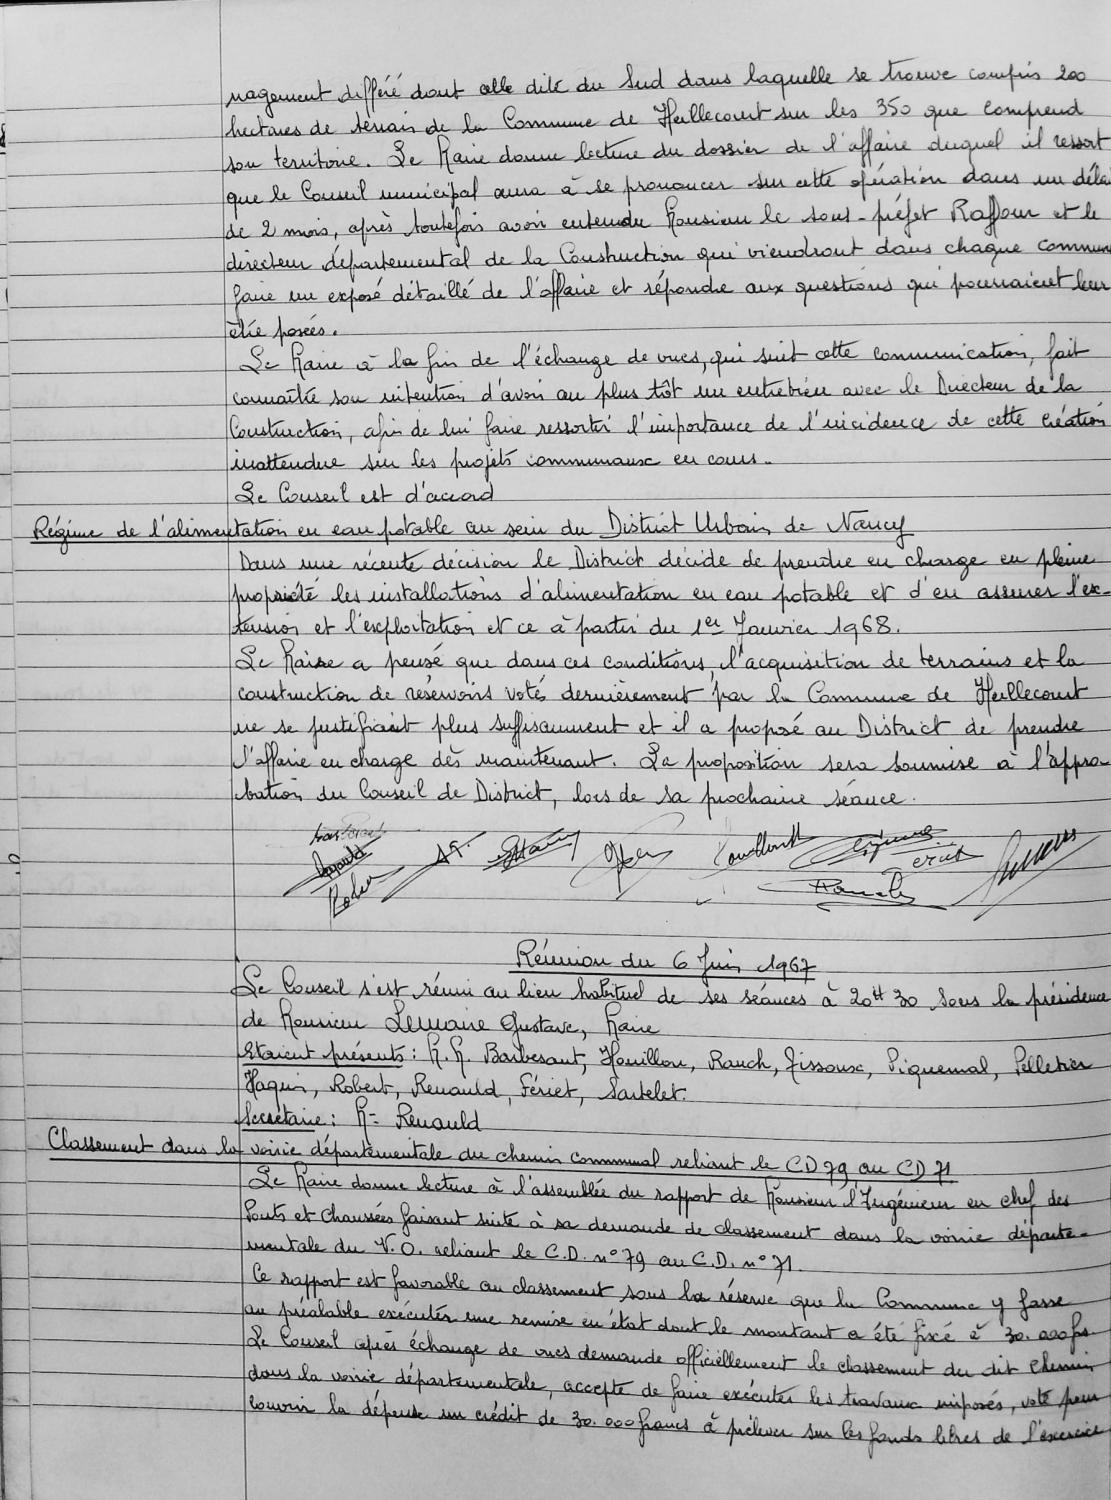 nagement différé dont celle dite du Sud dans laquelle se trouve compris 200
hectares de terrain de la Commune de Heillecourt sur les 350 que comprend
son territoire. Le Maire donne lecture du dossier de l'affaire duquel il ressort
que le Conseil municipal aura à se prononcer sur cette opération dans un délai
de 2 mois, après toutefois avoir entendu Monsieur le sous-préfet Raffour et le
directeur départemental de la Construction qui viendront dans chaque commune
faire un exposé détaillé de l'affaire et répondre aux questions qui pourraient leur
être posées.
Le Maire à la fin de l'échange de vues, qui suit cette communication, fait
connaître son intention d'avoir au plus tôt un entretien avec le Directeur de la
Construction, afin de lui faire ressortir l'importance de l'incidence de cette création
inattendue sur les projets communaux en cours.
Le Conseil est d'accord
Régime de l'alimentation en eau potable au sein du District Urbain de Nancy
Dans une récente décision le District décide de prendre en charge en pleine
propriété les installations d'alimentation en eau potable et d'en assurer l'ex-
tension et l'exploitation et ce à partir du 1er Janvier 1968.
Le Maire a pensé que dans ces conditions, l'acquisition de terrains et la
construction de réservoirs votés dernièrement par la Commune de Heillecourt
ne se justifiait plus suffisamment et il a proposé au District de prendre
l'affaire en charge dès maintenant. La proposition sera soumise à l'appro-
bation du Conseil de District, lors de sa prochaine séance.
Réunion du 6 Juin 1967
Le Conseil s'est réuni au lieu habituel de ses séances à 20H30 sous la présidence
de Monsieur Lemaire Gustave, Maire
Etaient présents : M.M. Barbesant, Houillon, Rauch, Tissoux, Piquemal, Pelletier
Haquin, Robert, Renauld, Fériet, Sartelet.
Secrétaire : M= Renauld
Classement dans la voirie départementale du chemin communal reliant le CD 79 au CD 71
Le Maire donne lecture à l'assemblée du rapport de Monsieur l'Ingénieur en chef des
Ponts et Chaussées faisant suite à sa demande de classement dans la voirie départe-
mentale du V.O. reliant le C.D. n° 79 au C.D. n° 71.
Ce rapport est favorable au classement sous la réserve que la Commune y fasse
au préalable exécuter une remise en état dont le montant a été fixé à 30.000 frs
Le Conseil après échange de vues demande officiellement le classement du dit chemin
dans la voirie départementale, accepte de faire exécuter les travaux imposés, vote pour
couvrir la dépense un crédit de 30.000 francs à prélever sur les fonds libres de l'exercice